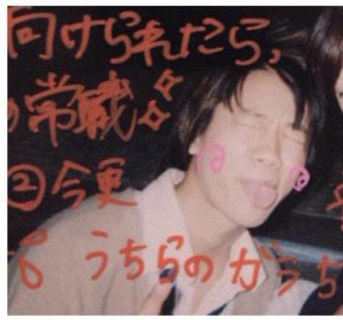 向けられたら,
の常識
②今更
うちらのがうち